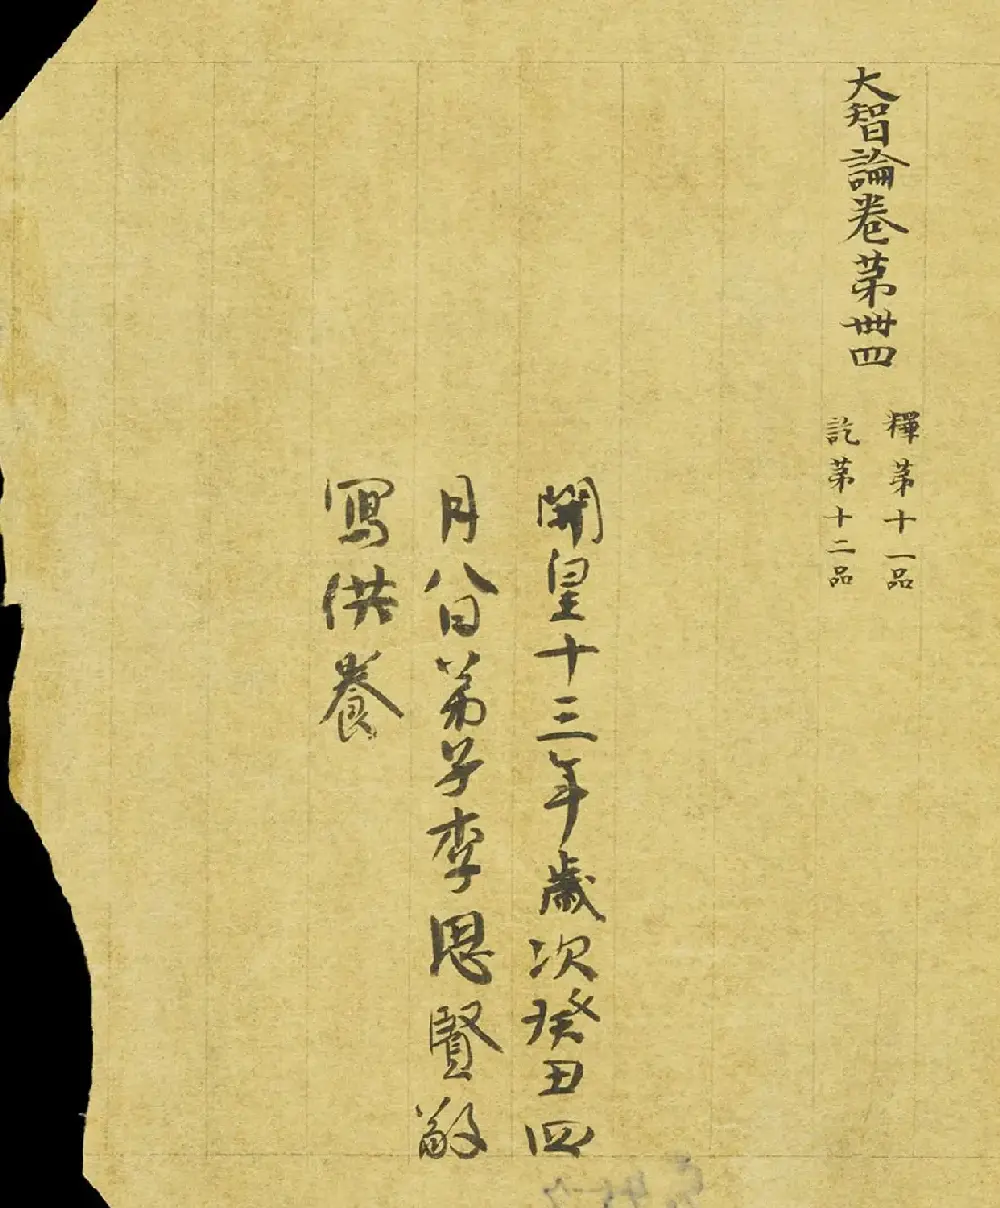 大智論卷第卌四
釋第十一品
訖第十二品
開皇十三年歲次癸丑四
月八日弟子李思賢敬
寫供養